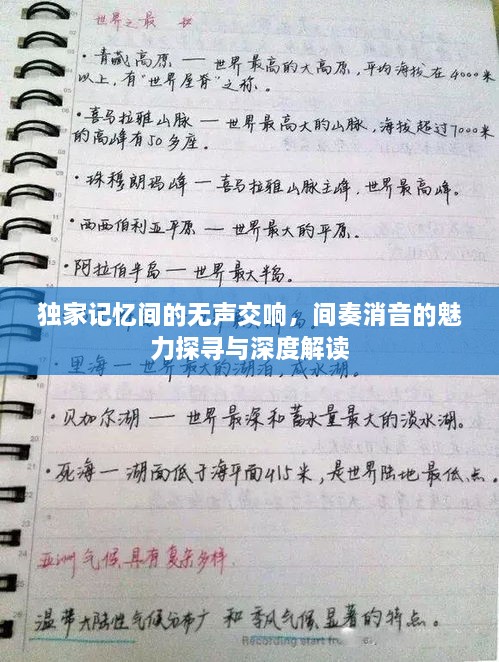 世界之最
·青藏高原 — 世界最高的大高原,平均海拔在4000米
以上,有"世界屋脊"之称。
·喜马拉雅山脉 — 世界最高大的山脉,海拔超过7000米
的高峰有50多座。
·珠穆朗玛峰 — 喜马拉雅山脉主峰,世界最高峰。
·西西伯利亚平原 — 世界最大的平原.
·阿拉伯半岛 — 世界最大半岛。
独家记忆间的无声交响，间奏消音的魅
力探寻与深度解读
·里海 — 世界最大的湖泊,咸水湖。
·贝加尔湖 — 世界最深和蓄水量最大的淡水湖。
·死海 — 湖面低于海平面415米,是世界陆地最低点。
亚洲气候具有复杂多样
温带大陆性气候分布广 和季风气候显著的特点。
Recording start fr